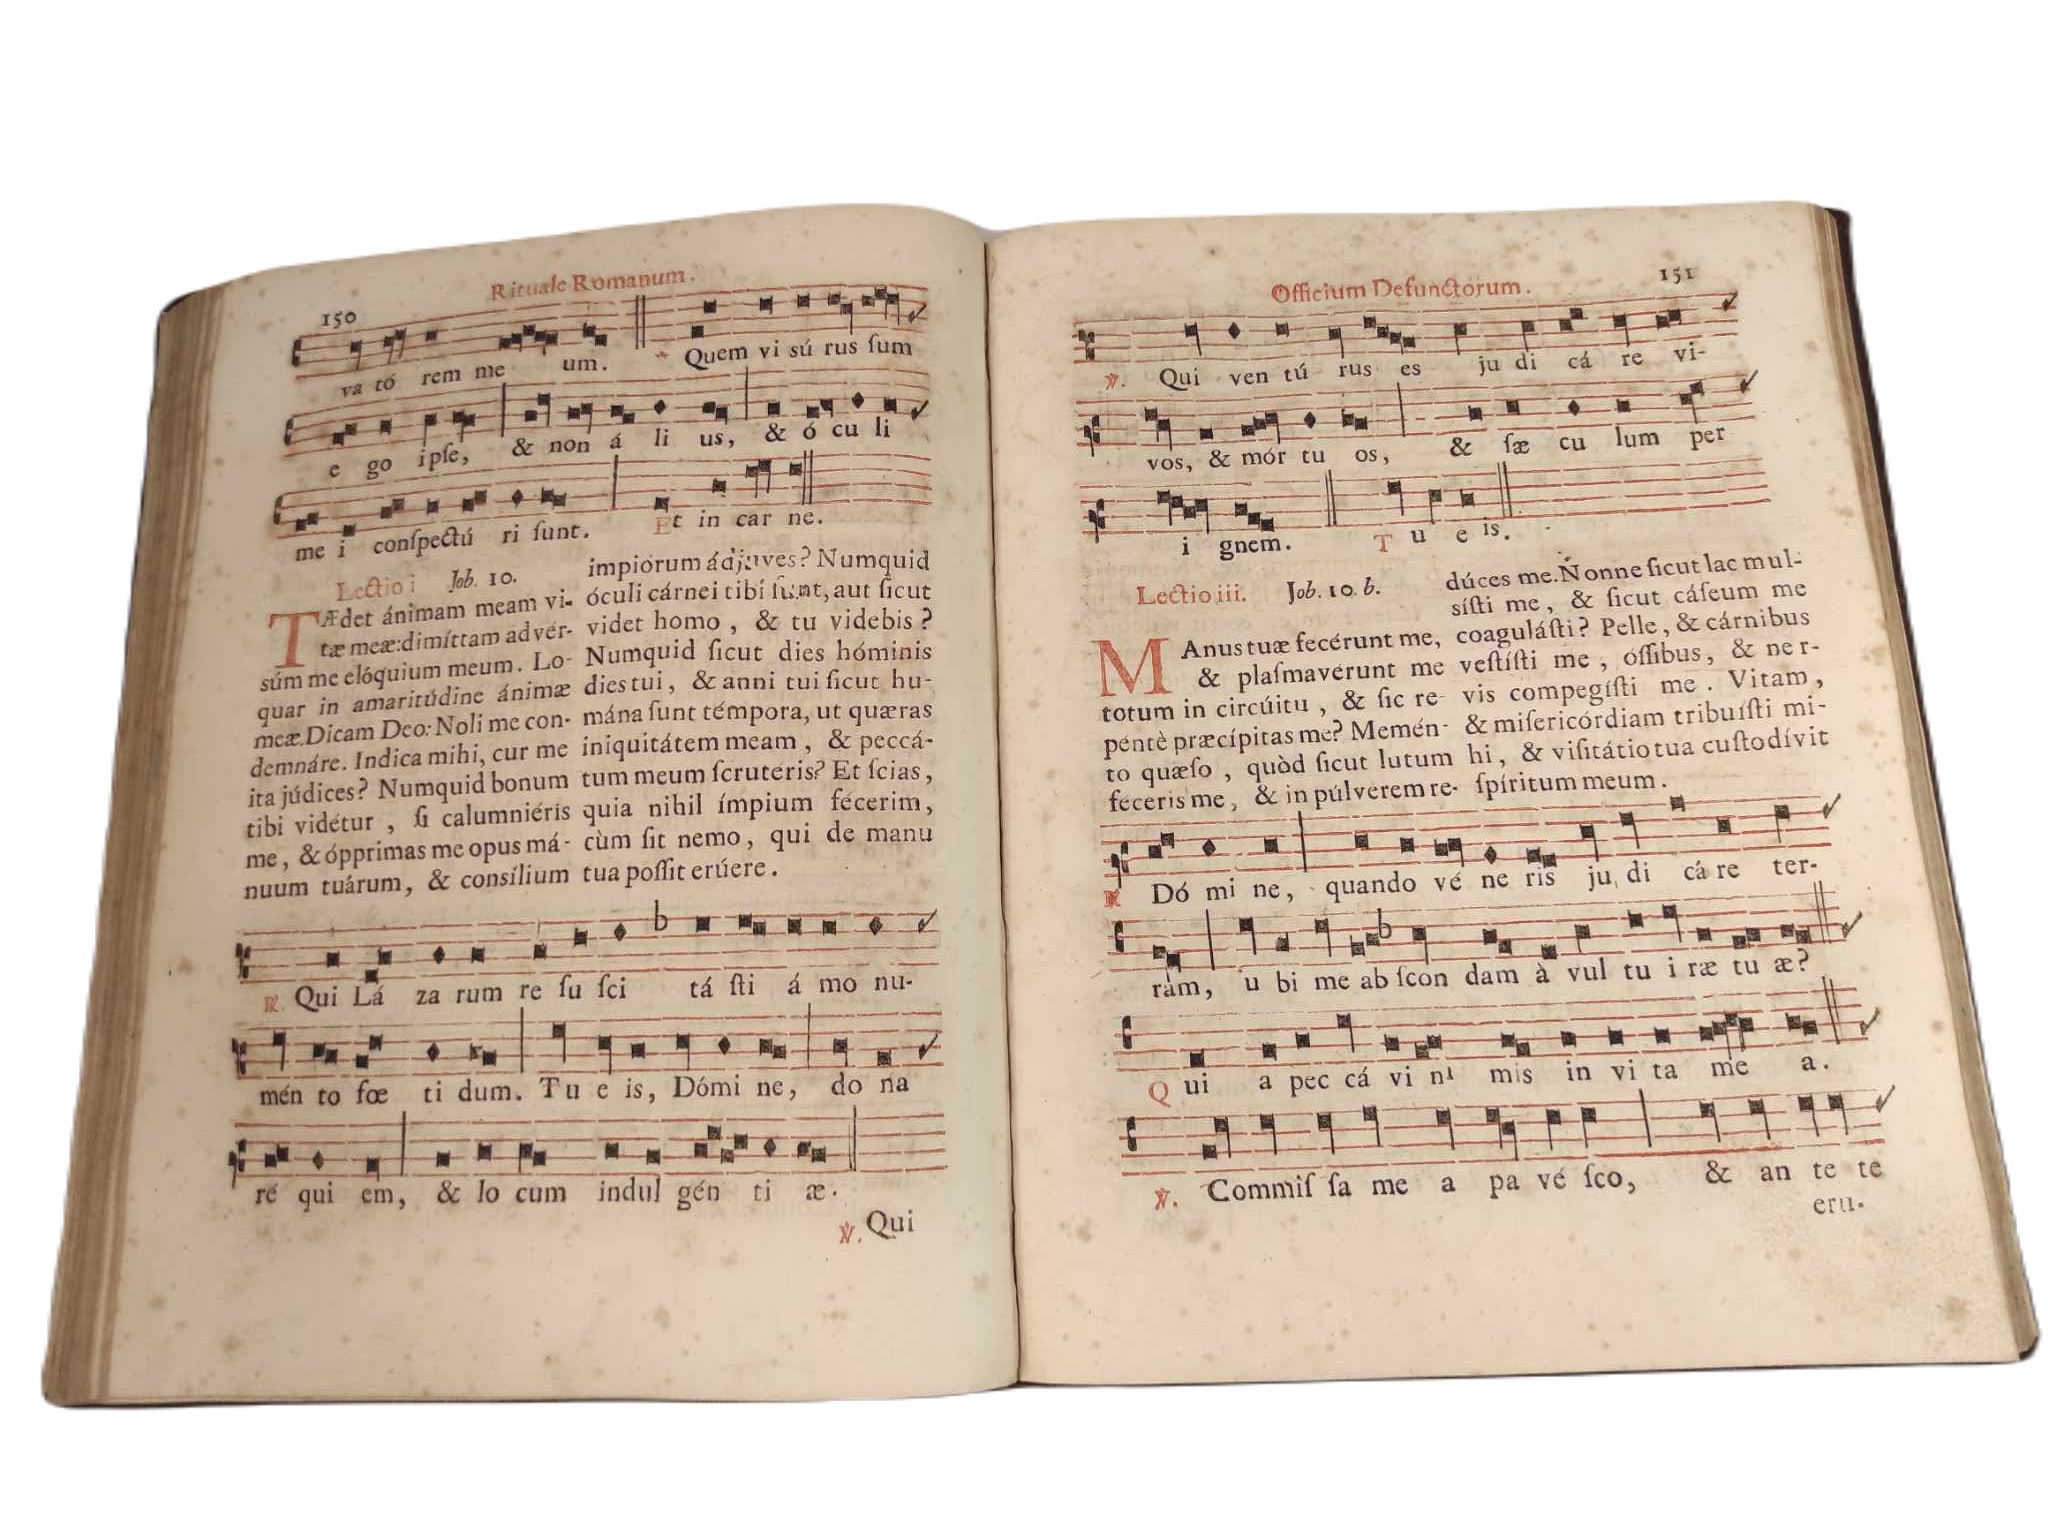 150
Rituale Romanum.
va tó rem me um. * Quem vi sú rus ſum
e go ipſe, & non á li us, & ó cu li
me i conſpectú ri ſunt. Et in car ne.
Lectio i Job. 10.
TÆdet ánimam meam vi-
tæ meæ: dimíttam adver-
súm me elóquium meum. Lo-
quar in amaritúdine ánimæ
meæ. Dicam Deo: Noli me con-
demnáre. Indica mihi, cur me
ita júdices? Numquid bonum
tibi videtur, ſi calumniéris
me, & ópprimas me opus má-
nuum tuárum, & consílium
impiorum ádjuves? Numquid
óculi cárnei tibi ſunt, aut ſicut
videt homo, & tu videbis?
Numquid ſicut dies hóminis
dies tui, & anni tui ſicut hu-
mána ſunt témpora, ut quæras
iniquitátem meam, & peccá-
tum meum ſcruteris? Et ſcias,
quia nihil ímpium fécerim,
cùm ſit nemo, qui de manu
tua poſſit erúere.
℟. Qui Lá za rum re ſu ſci tá ſti á mo nu-
mén to fœ ti dum. Tu e is, Dómi ne, do na
ré qui em, & lo cum indul gén ti æ.
℣. Qui
Officium Defunctórum.
151
℣. Qui ven tú rus es ju di cá re vi-
vos, & mór tu os, & ſæ cu lum per
i gnem. T u e is.
Lectio iii. Job. 10. b.
MAnus tuæ fecérunt me,
& plaſmavérunt me
totum in circúitu, & ſic re-
péntè præcípitas me? Memén-
to quæſo, quòd ſicut lutum
féceris me, & in púlverem re-
dúces me. Nonne ſicut lac mul-
síſti me, & ſicut cáſeum me
coaguláſti? Pelle, & cárnibus
veſtíſti me, óſſibus, & ner-
vis compegíſti me. Vitam,
& miſericórdiam tribuíſti mi-
hi, & viſitátio tua cuſtodívit
ſpíritum meum.
℟ Dó mi ne, quando vé ne ris ju di cá re ter-
ràm, u bi me ab ſcon dam à vul tu i ræ tu æ?
Q ui a pec cá vi ni mis in vi ta me a.
℣. Commiſ ſa me a pa vé ſco, & an te te
eru-